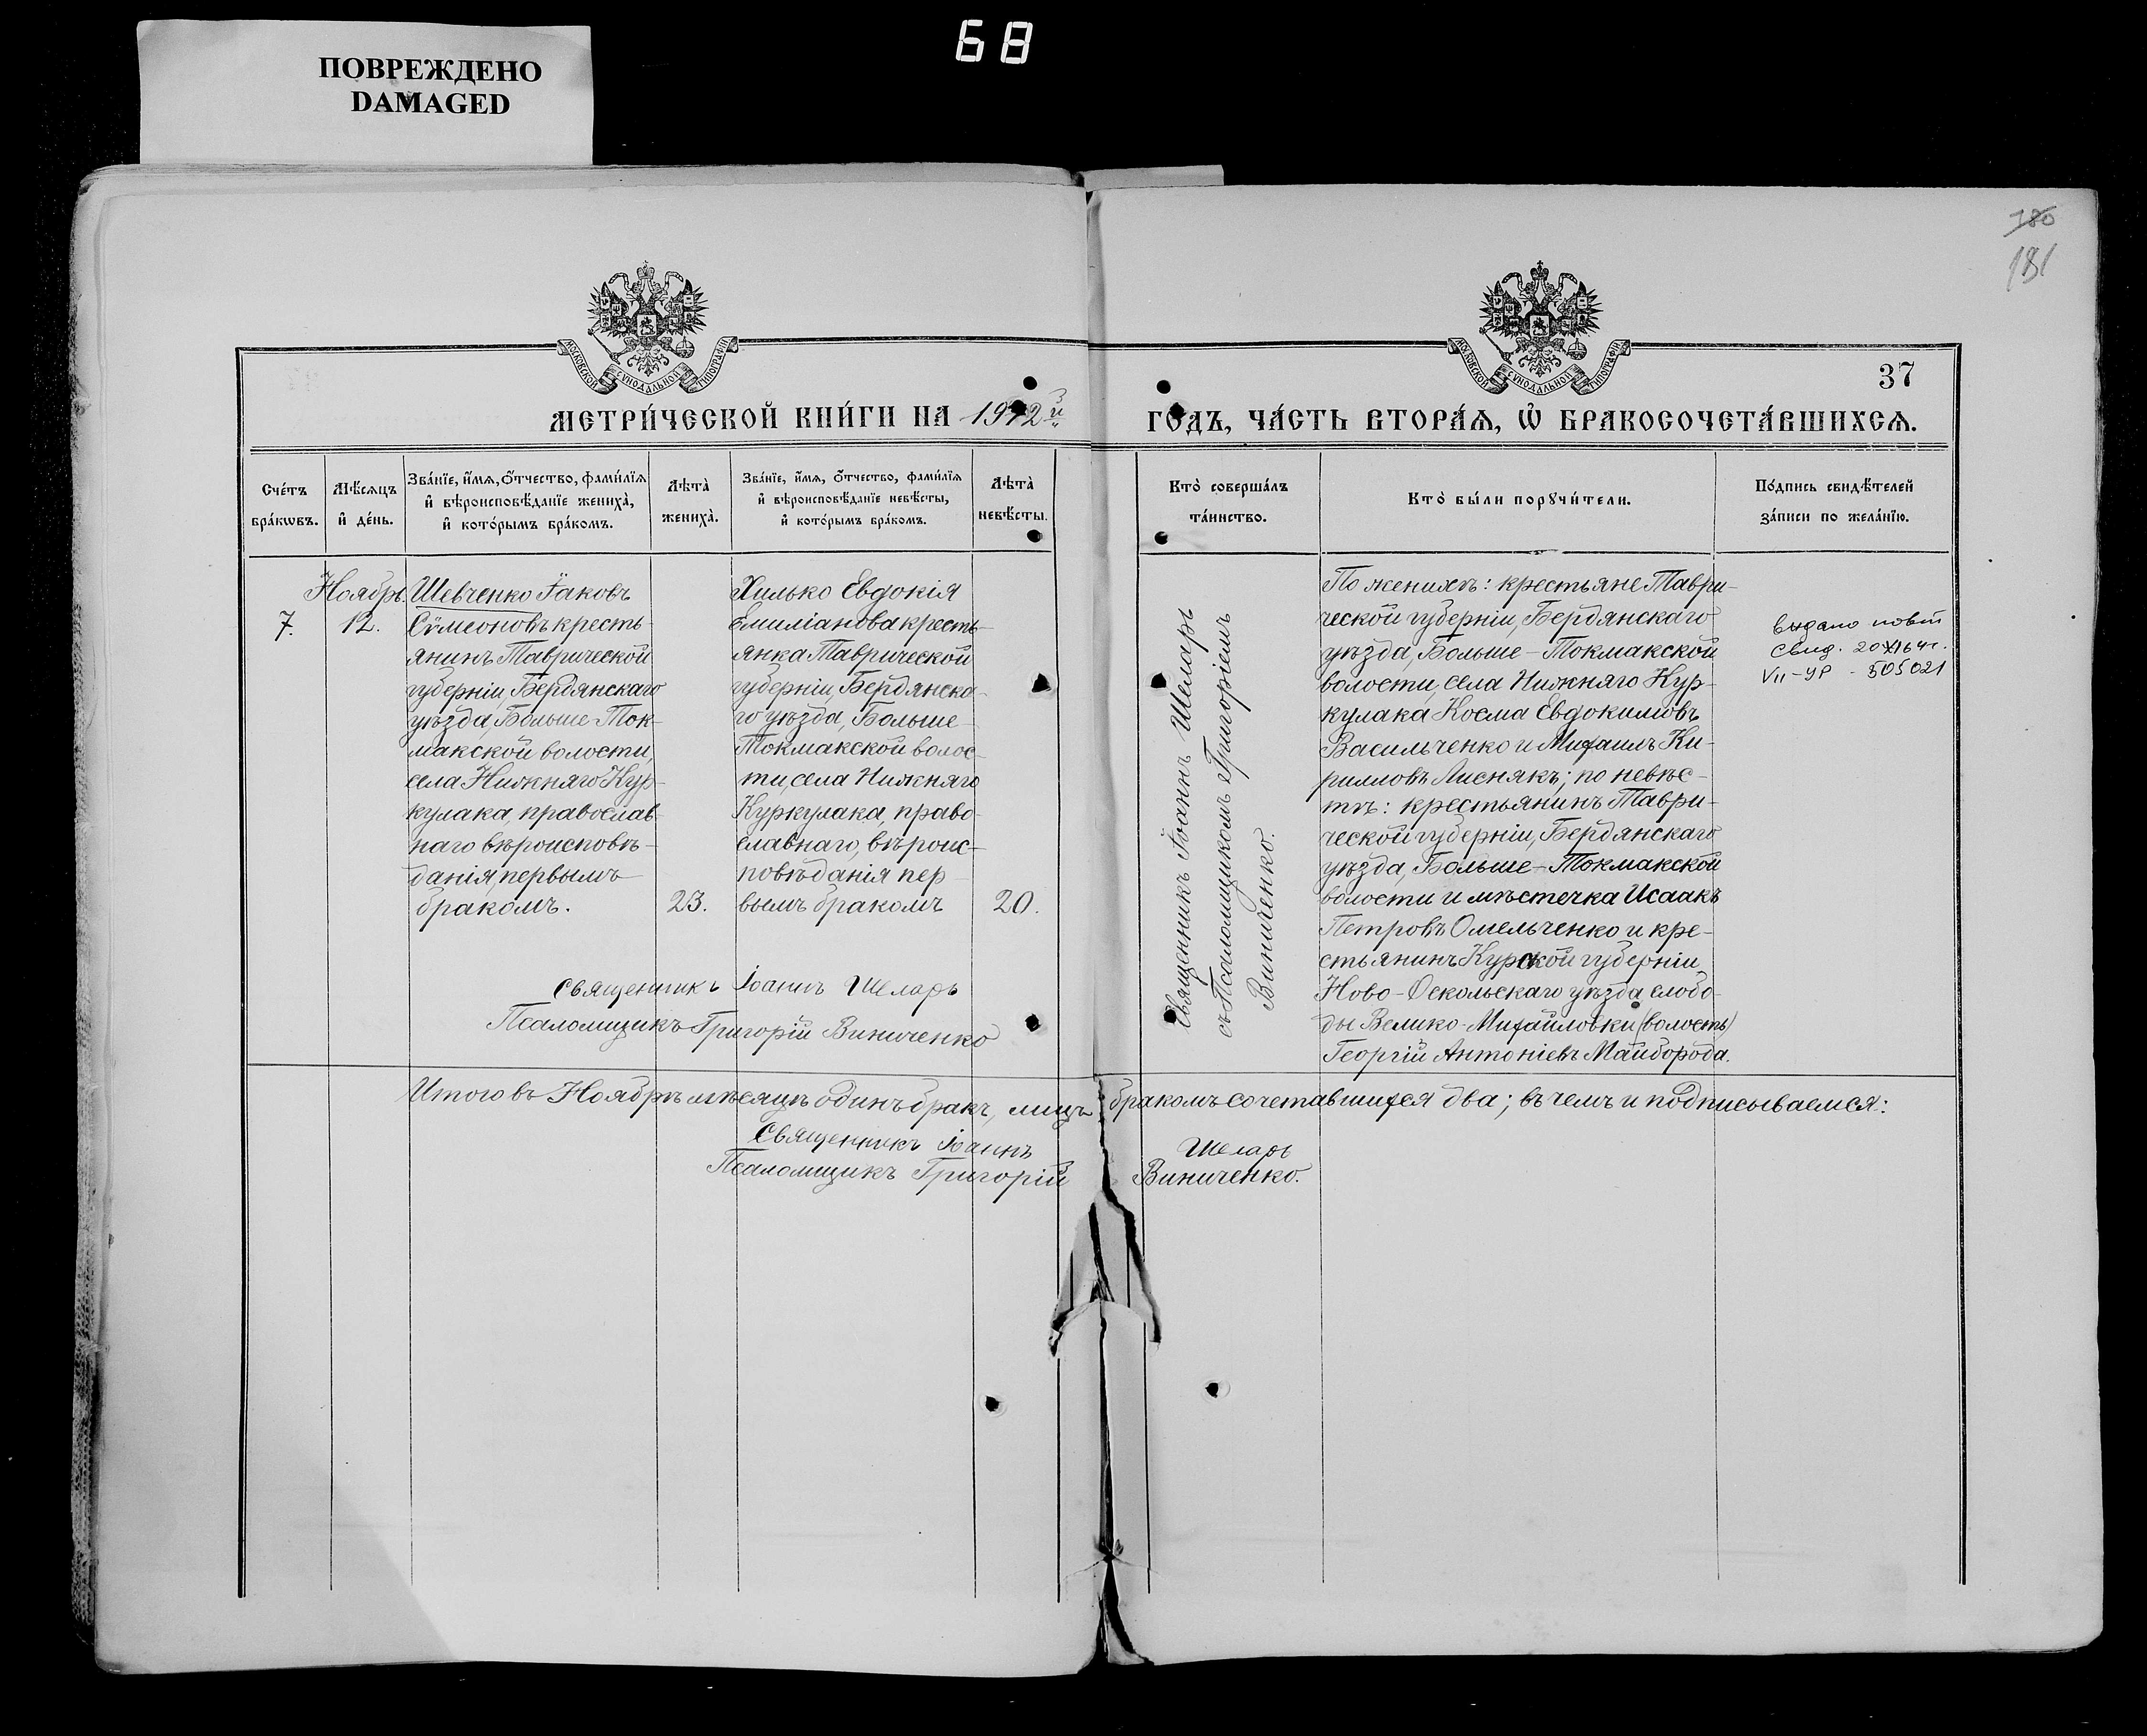 68
ПОВРЕЖДЕНО
DAMAGED
180
181
МОСКОВСКОЙ СѴНОДАЛЬНОЙ ТИПОГРАФІИ
МОСКОВСКОЙ СѴНОДАЛЬНОЙ ТИПОГРАФІИ
37
МЕТРИ́ЧЕСКОЙ КНИ́ГИ НА 1912й
ГО́ДЪ, ЧА́СТЬ ВТОРА́Ѧ, Ѽ БРАКОСОЧЕТА́ВШИХСѦ.
Сче́тъ
бра́кѡвъ.
Мѣ́сяцъ
и҆ де́нь.
Зва́нїе, и҆́мѧ, ѻ҆́тчество, фами́лїѧ
и҆ вѣроисповѣ́данїе жениха̀,
и҆ кото́рымъ бра́комъ.
Лѣта̀
жениха̀.
Зва́нїе, и҆́мѧ, ѻ҆́тчество, фами́лїѧ
и҆ вѣроисповѣ́данїе невѣ́сты,
и҆ кото́рымъ бра́комъ.
Лѣта̀
невѣ́сты.
Кто̀ соверша́лъ
та́инство.
Кто̀ бы́ли порꙋчи́тели.
По́дпись свидѣ́телей
за́писи по жела́нїю.
7.
Ноябрь.
12.
Шевченко Іаковъ
Сѵмеоновъ кресть-
янинъ Таврической
губерніи, Бердянскаго
уѣзда, Больше-Ток-
макской волости,
села Нижняго Кур-
кулака, православ-
наго вѣроисповѣ-
данія, первымъ
бракомъ.
23.
Хилько Евдокія
Емиліанова кресть-
янка Таврической
губерніи, Бердянска-
го уѣзда, Больше-
Токмакской волос-
ти, села Нижняго
Куркулака, право-
славнаго, вѣроис-
повѣданія пер-
вымъ бракомъ
20.
Священникъ Іоаннъ Шеларь
Псаломщикъ Григорій Виниченко
Священникъ Іоаннъ Шеларь
съ Псаломщикомъ Григоріемъ
Виниченко.
По женихѣ: крестьяне Таври-
ческой губерніи, Бердянскаго
уѣзда, Больше-Токмакской
волости, села Нижняго Кур-
кулака Косма Евдокимовъ
Васильченко и Михаилъ Ки-
рилловъ Лиснякъ; по невѣс-
тѣ: крестьянинъ Таври-
ческой губерніи, Бердянскаго
уѣзда, Больше-Токмакской
волости и мѣстечка Исаакъ
Петровъ Омельченко и кре-
стьянинъ Курской губерніи
Ново-Оскольскаго уѣзда слобо-
ды Велико-Михайловки (волость)
Георгій Антоніевъ Майборода.
выдано повт
свид. 20/XI 64 г.
VII-УР - 505021
Итого въ Ноябрѣ мѣсяцѣ одинъ бракъ, лицъ бракомъ сочетавшихся два; въ чемъ и подписываемся:
Священникъ Іоаннъ Шеларь
Псаломщикъ Григорій Виниченко.